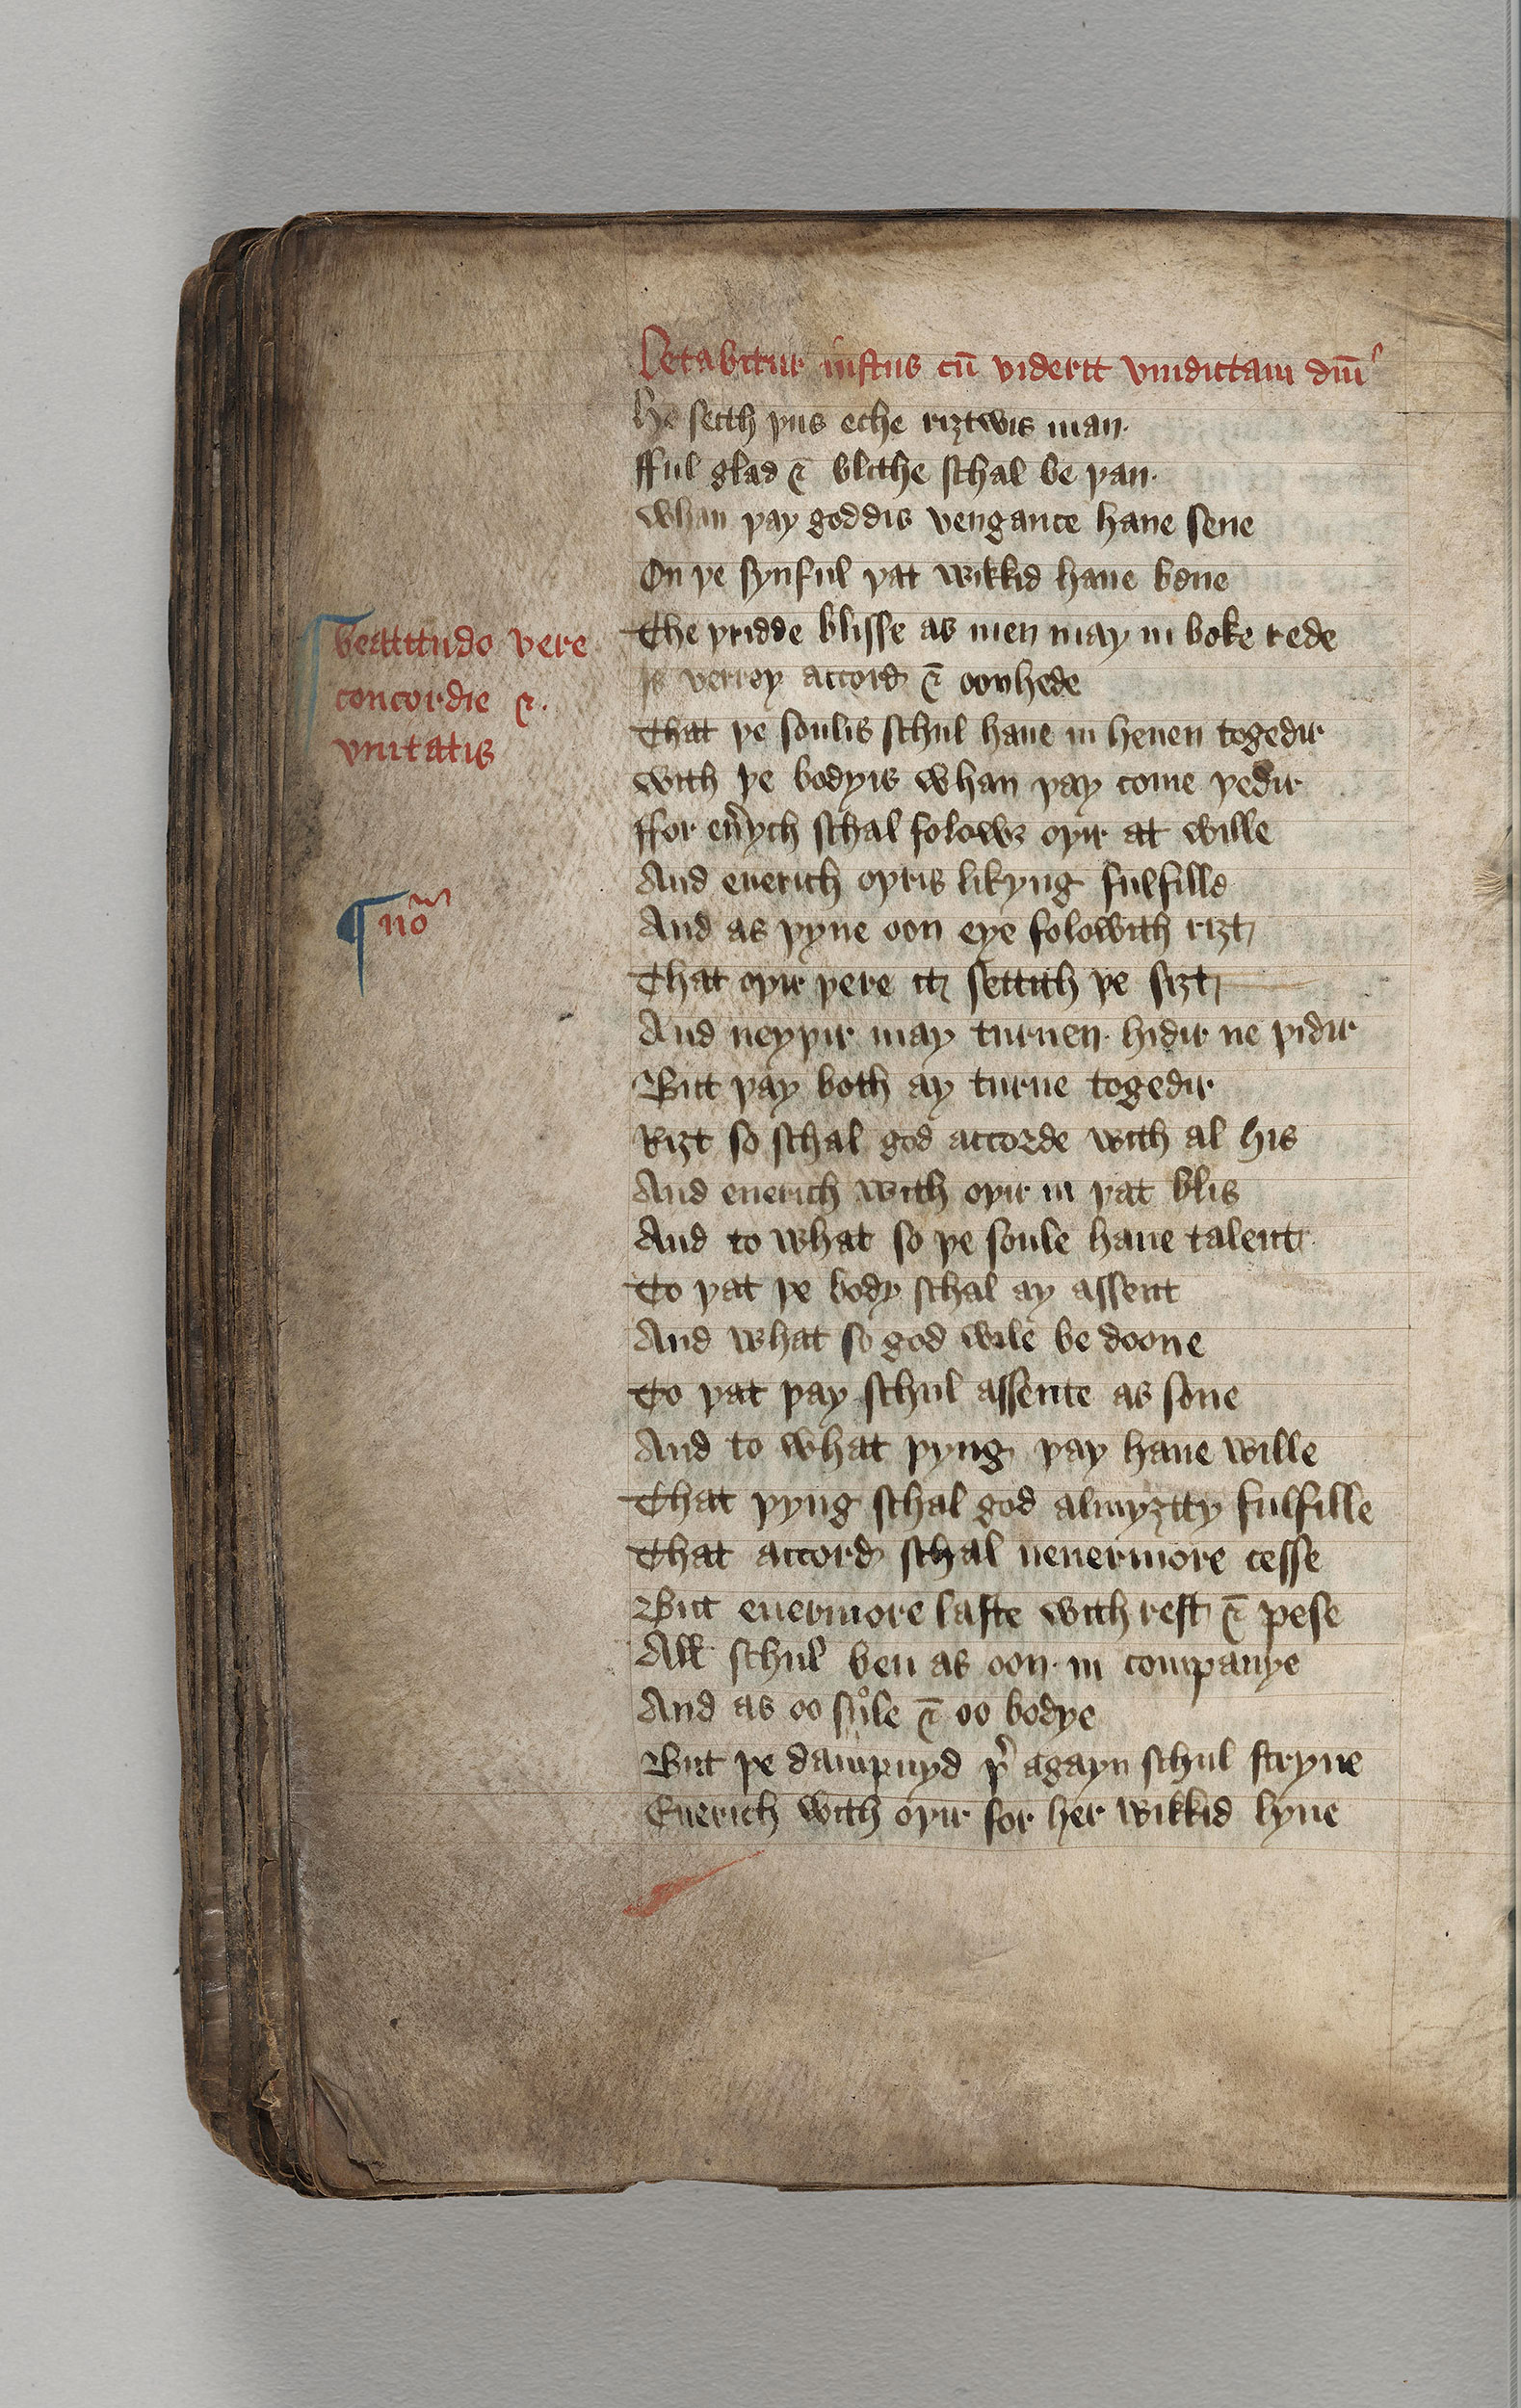 Letabitur iustus cū viderit vindictam dūī
He seith þus eche riȝtwis man·
fful glad & blithe schal be þan·
whan þay goddis vengance haue sene
On þe synful þat wikkid haue bene
beatitudo vere
concordie &·
vnitatis
The þridde blisse as men may in boke rede
Is verrey accord & oonhede
That þe soulis schul haue in heuen togedir
with þe bodyis whan þay come þedir
ffor eu̓ych schal folowȝ oþir at wille
And euerich oþris likyng fulfille
¶ no
And as þyne oon eye folowith riȝt
That oþir þere it settith þe siȝt
And neyþir may turnen· hidir ne þidir
But þay both ay turne togedir
Riȝt so schal god accorde with al his
And euerich with oþir in þat blis
And to what so þe soule haue talent
To þat þe body schal ay assent
And what so god wile be doone
To þat þay schul assente as sone
And to what þyng þay haue wille
That þyng schal god almyȝtty fulfille
That accord schal neuermore cesse
But euermore laste with rest & pese
All schul ben as oon· in companye
And as oo sůle & oo bodye
But þe dampnyd þ̓ agayn schul stryue
Euerich with oþir for her wikkid lyue